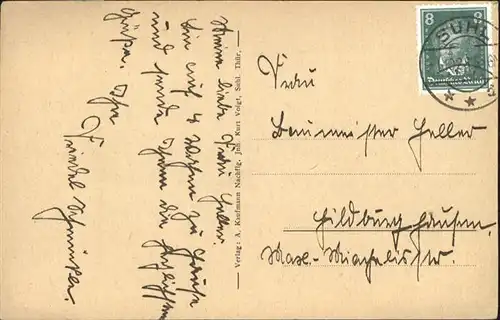 Meine liebe Frau Heller
Bin auf 4 Wochen zu Hause
und sende Ihnen die herzlichsten
Grüße. Ihr
Friedel
Verlag: A. Kaufmann Nachflg. Inh. Kurt Voigt, Suhl, Thür.
8 8
Deutsches Reich
SUHL
Frau
Baumeister Heller
Hildburghausen.
Max-Michaelis Str.